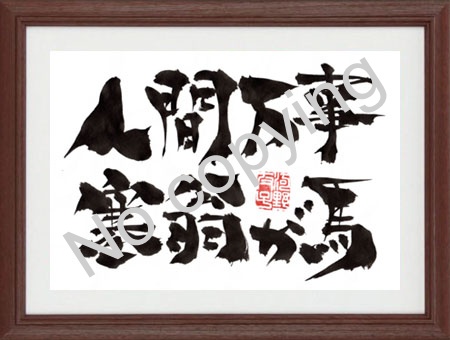 人間万事
塞翁が馬
No copying